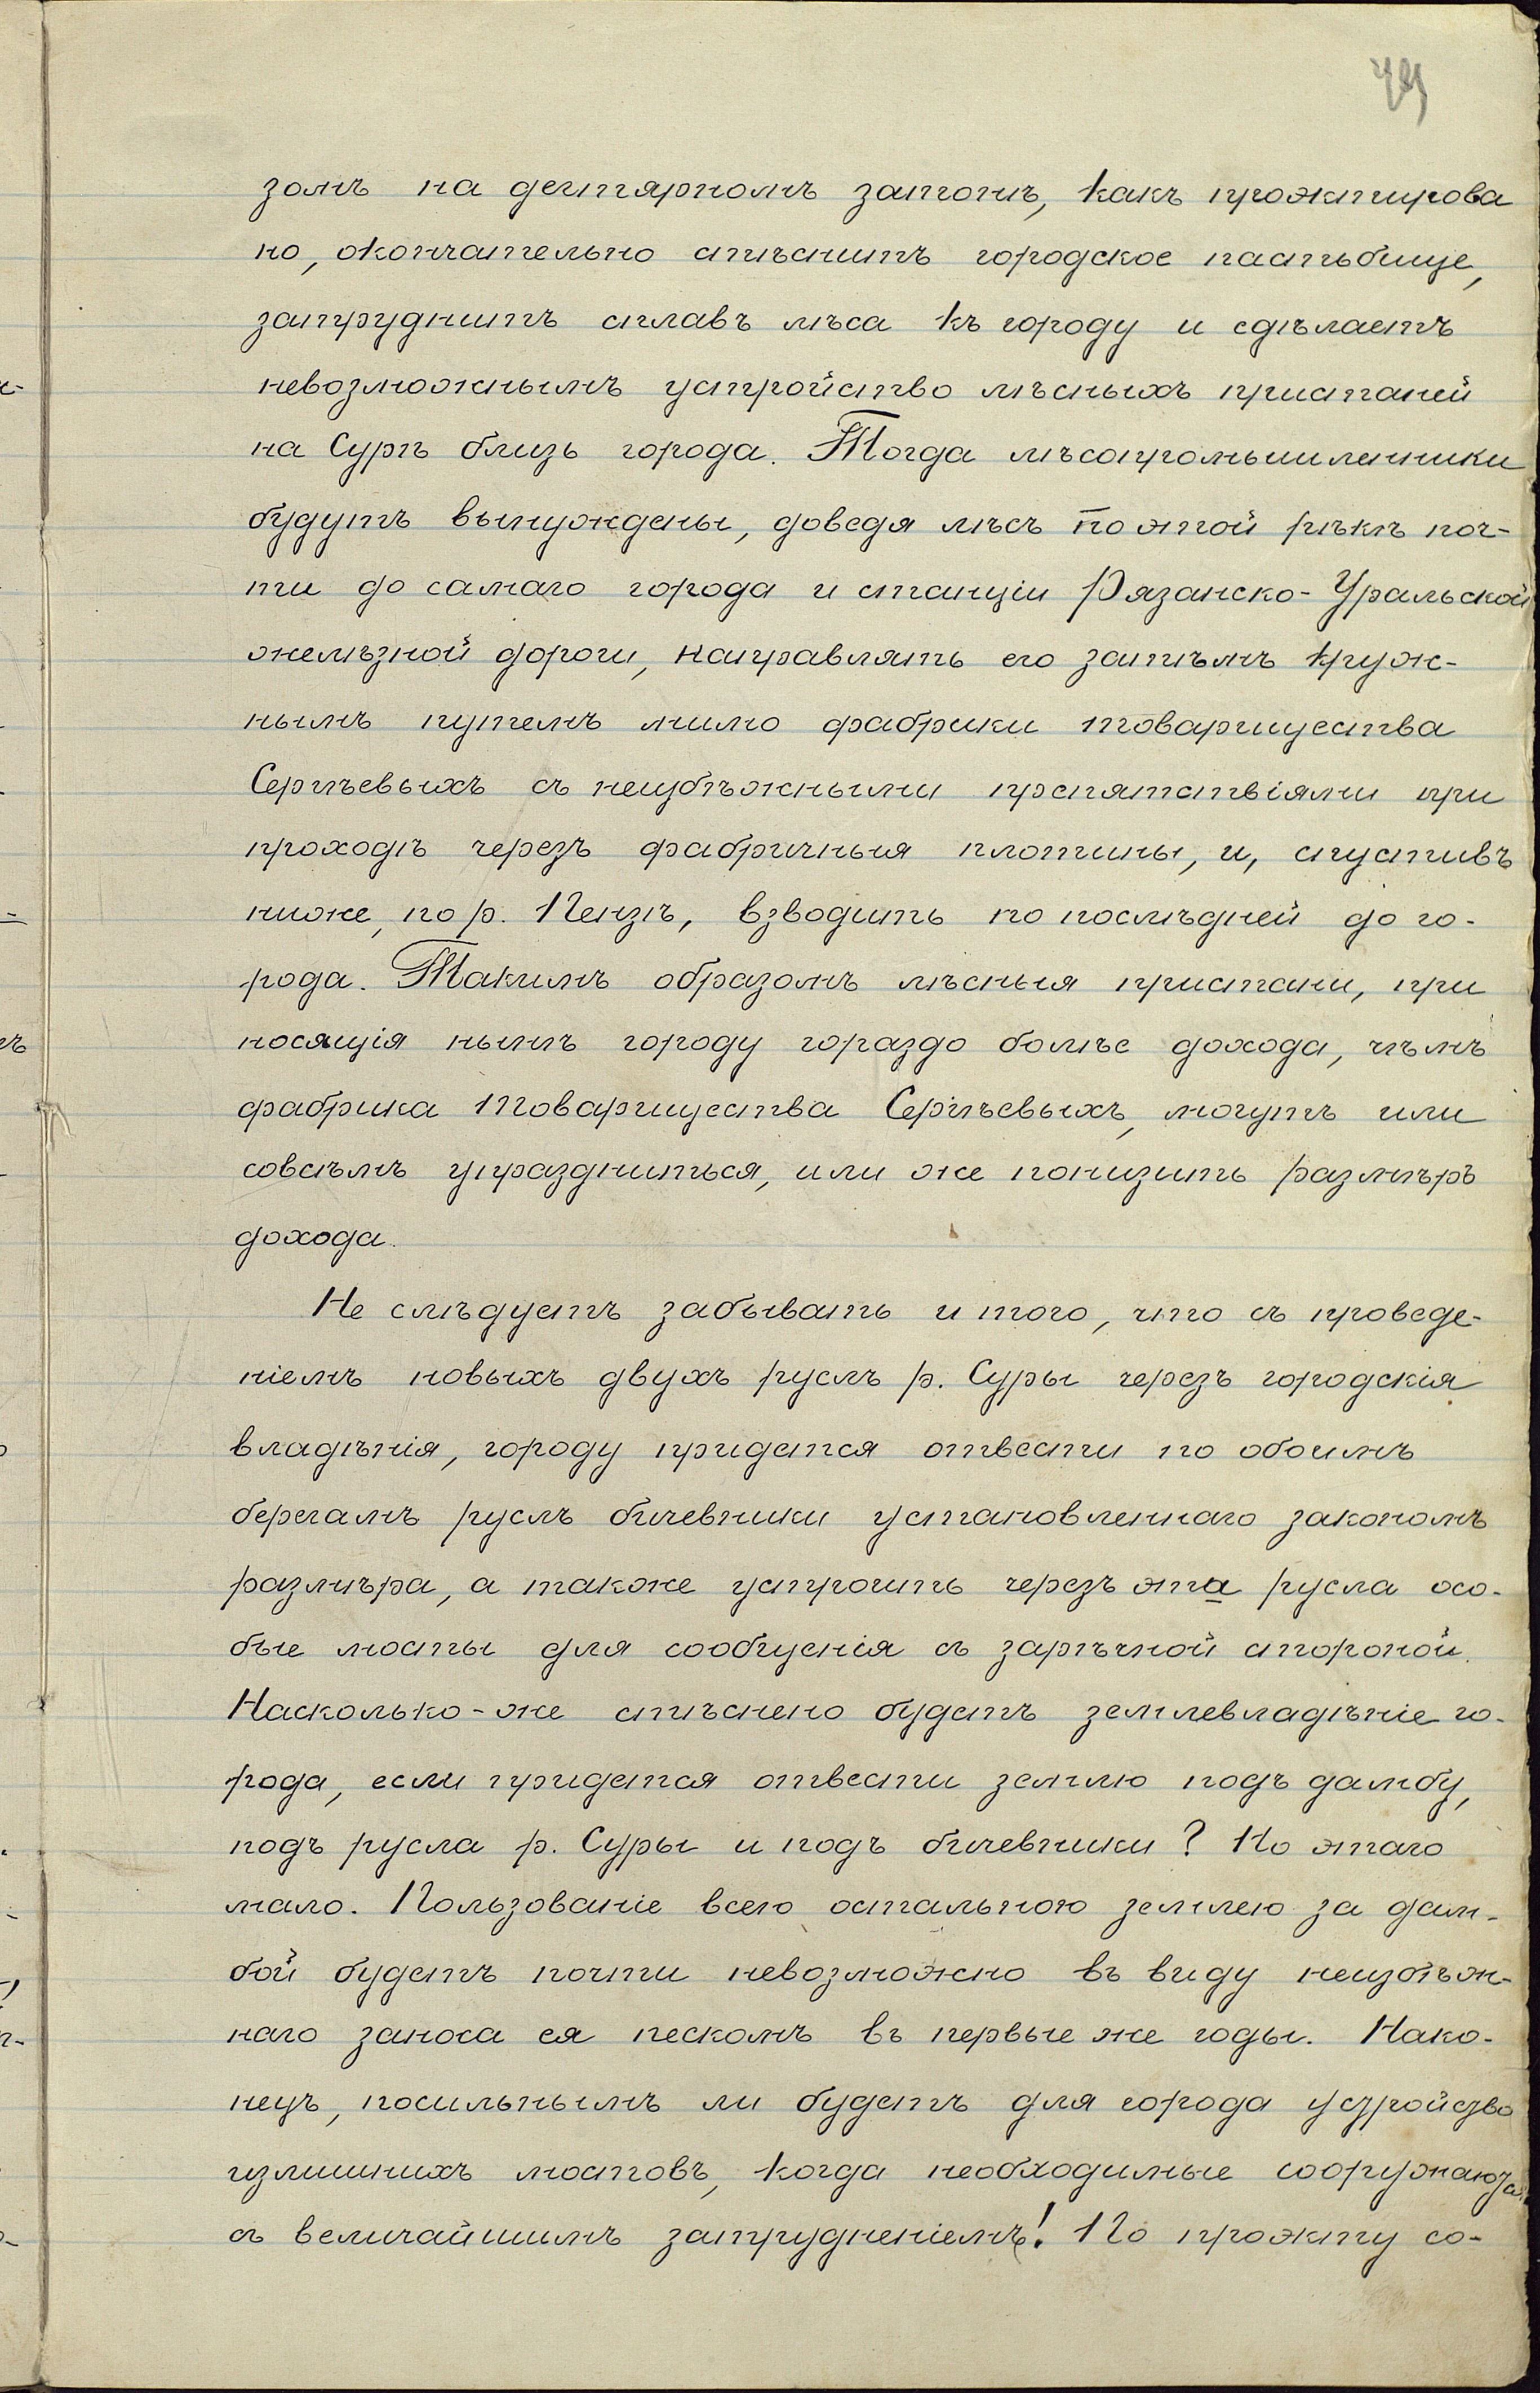 зомъ на дегтярномъ затонѣ, какъ проэктирова
но, окончательно стѣснитъ городское пастьбище,
затруднитъ сплавъ лѣса къ городу и сдѣлаетъ
невозможнымъ устройство лѣсныхъ пристаней
на Сурѣ близь города. Тогда лѣсопромышленники
будутъ вынуждены, доведя лѣсъ по этой рѣкѣ поч-
ти до самаго города и станціи Рязанско-Уральской
желѣзной дороги, направлять его затѣмъ круж-
нымъ путемъ мимо фабрики товарищества
Сергѣевыхъ съ неизбѣжными препятствіями при
проходѣ черезъ фабричныя плотины, и, спустивъ
ниже, по р. Пензѣ, взводить по послѣдней до го-
рода. Такимъ образомъ лѣсныя пристани, при
носящія нынѣ городу гораздо болѣе дохода, чѣмъ
фабрика Товарищества Сергѣевыхъ, могутъ или
совсѣмъ упраздниться, или же понизить размѣръ
дохода.
Не слѣдуетъ забывать и того, что съ проведе-
ніемъ новыхъ двухъ руслъ р. Суры черезъ городскія
владѣнія, городу придется отвести по обоимъ
берегамъ руслъ бичевники установленнаго закономъ
размѣра, а также устроить черезъ эта русла осо-
бые мосты для сообщенія съ зарѣчной стороной.
Насколько-же стѣснено будетъ землевладѣніе го-
рода, если придется отвести землю подъ дамбу,
подъ русла р. Суры и подъ бичевники? Но этаго
мало. Пользованіе всею остальною землею за дам-
бой будетъ почти невозможно въ виду неизбѣж-
наго заноса ея пескомъ въ первые же годы. Нако-
нецъ, посильнымъ ли будетъ для города устройство
излишнихъ мостовъ, когда необходимые сооружаются
съ величайшимъ затрудненіемъ! По проэкту со-